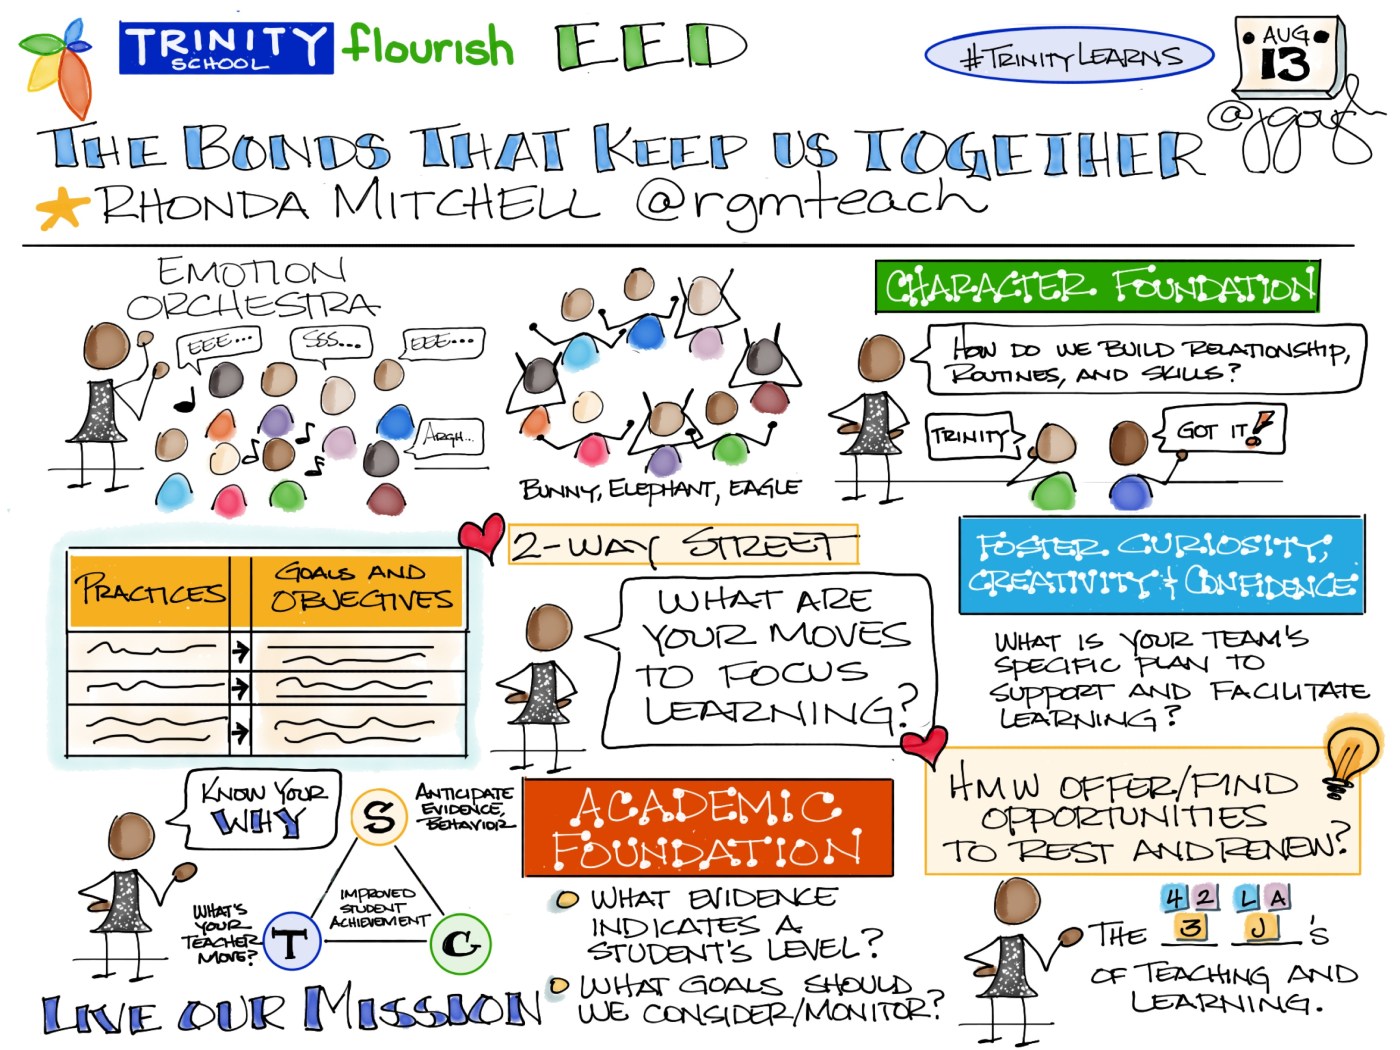 TRINITY
SCHOOL
flourish
EED
#TRINITYLEARNS
AUG
13
@jgough
THE BONDS THAT KEEP US TOGETHER
RHONDA MITCHELL @rgmteach
EMOTION
ORCHESTRA
EEE...
SSS...
EEE...
ARGH...
BUNNY, ELEPHANT, EAGLE
CHARACTER FOUNDATION
HOW DO WE BUILD RELATIONSHIP,
ROUTINES, AND SKILLS?
TRINITY
GOT IT!
PRACTICES
GOALS AND
OBJECTIVES
2-WAY STREET
WHAT ARE
YOUR MOVES
TO FOCUS
LEARNING?
FOSTER CURIOSITY,
CREATIVITY & CONFIDENCE
WHAT IS YOUR TEAM'S
SPECIFIC PLAN TO
SUPPORT AND FACILITATE
LEARNING?
HMW OFFER/FIND
OPPORTUNITIES
TO REST AND RENEW?
KNOW YOUR
WHY
S
ANTICIPATE
EVIDENCE,
BEHAVIOR
IMPROVED
STUDENT
ACHIEVEMENT
WHAT'S
YOUR
TEACHER
MOVE?
T
G
LIVE OUR MISSION
ACADEMIC
FOUNDATION
WHAT EVIDENCE
INDICATES A
STUDENT'S LEVEL?
WHAT GOALS SHOULD
WE CONSIDER/MONITOR?
4 2 L A
THE 3 J 'S
OF TEACHING AND
LEARNING.